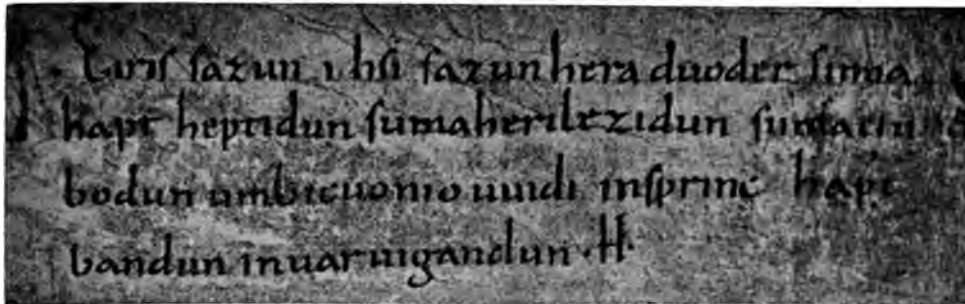 Eiris sazun idisi sazun hera duoder suma
hapt heptidun suma heri lezidun suma clu
bodun umbicuonio uuidi insprinc hapt
bandun inuar uigandun ·H·